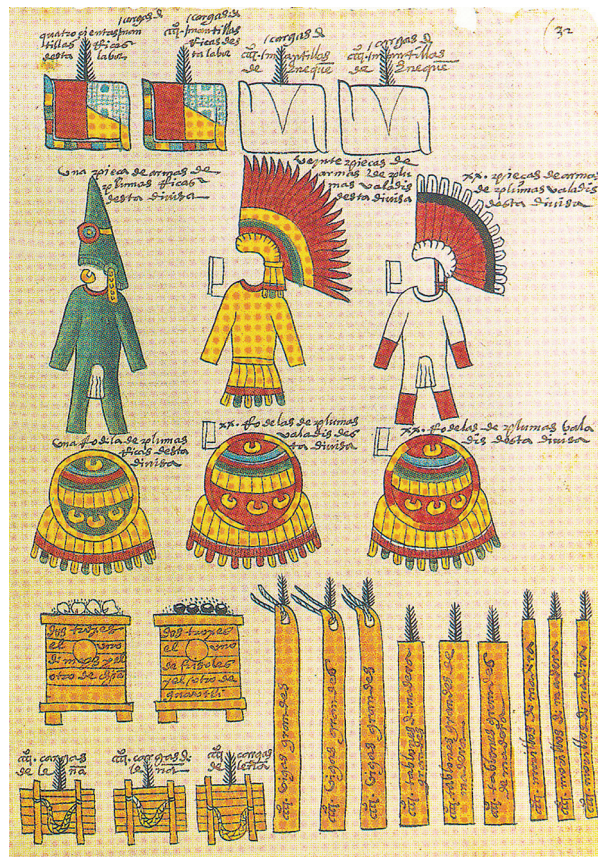 32
cargas de
quatrocientas man
tillas Ricas
desta labor
cargas de
mantillas
Ricas des
ta labor
cargas de
mantillas
de Eneque
cargas de
mantillas
de Eneque
Una pieça de armas de
plumas Ricas
desta divisa
veynte pieças de
armas de plu
mas valadis
desta divisa
xx. pieças de armas
de plumas valadis
desta divisa
una Rodela de plumas
Ricas desta
divisa
xx. Rodelas de plumas
valadis des
ta divisa
xx. Rodelas de plumas vala
dis desta divisa
dos troxes
el uno
de mayz y el
otro de chia
dos troxes
el uno
de frisoles
y el otro de
guautli
cargas
de leña
cargas de
leña
cargas
de leña
vigas grandes
vigas grandes
vigas grandes
tablones de madera
tablones grandes de
madera
tablones grandes
de madera
morillos de madera
morillos de madera
morillos de madera